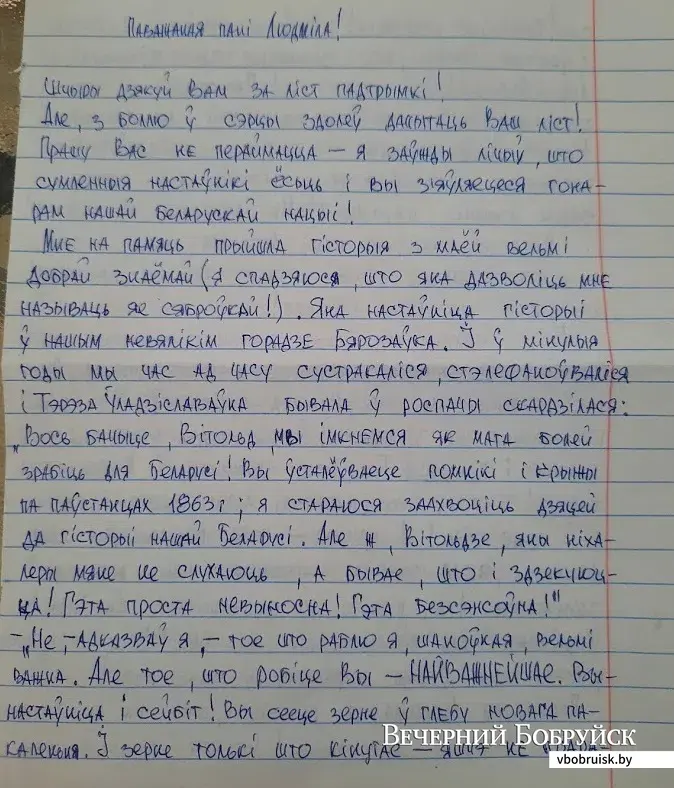 Паважаная пані Людміла!
Шчыры дзякуй Вам за ліст падтрымкі!
Але, з боллю ў сэрцы здолеў дачытаць Ваш ліст!
Прашу Вас не перайма​цца – я заўжды лічыў, што
сумленныя настаўнікі ёсьць і Вы з'яўляецеся гона-
рам нашай Беларускай нацыі!
Мне на памяць прыйшла гісторыя з маёй вельмі
добрай знаёмай (я спадзяюся, што яна дазволіць мне
называць яе сяброўкай!). Яна настаўніца гісторыі
ў нашым невялікім горадзе Бярозаўка. І ў мінулыя
годы мы час ад часу сустракаліся, стэлефаноўваліся
і Тэрэза Ўладзіславаўка бывала ў роспачы скардзілася:
„Вось бачыце, Вітольд, мы імкнемся як мага болей
зрабіць для Беларусі! Вы ўсталёўваеце помнікі і крыжы
па паўстанцах 1863 г; я стараюся заахвоціць дзяцей
да гісторыі нашай Беларусі. Але, Вітольдзе, яны ніха-
леры мяне не слухаюць, а бывае, што і здзекуюц-
ца! Гэта проста невыносна! Гэта безсэнсоўна!"
– „Не, – адказваў я, – тое што раблю я, шаноўная, вельмі
важна. Але тое, што робіце Вы – НАЙВАЖНЕЙШАЕ. Вы –
настаўніца і сейбіт! Вы сееце зерне ў глебу новага па-
каленьня. І зерне толькі што кінутае – яшчэ не
Вечерний Бобруйск
vbobruisk.by